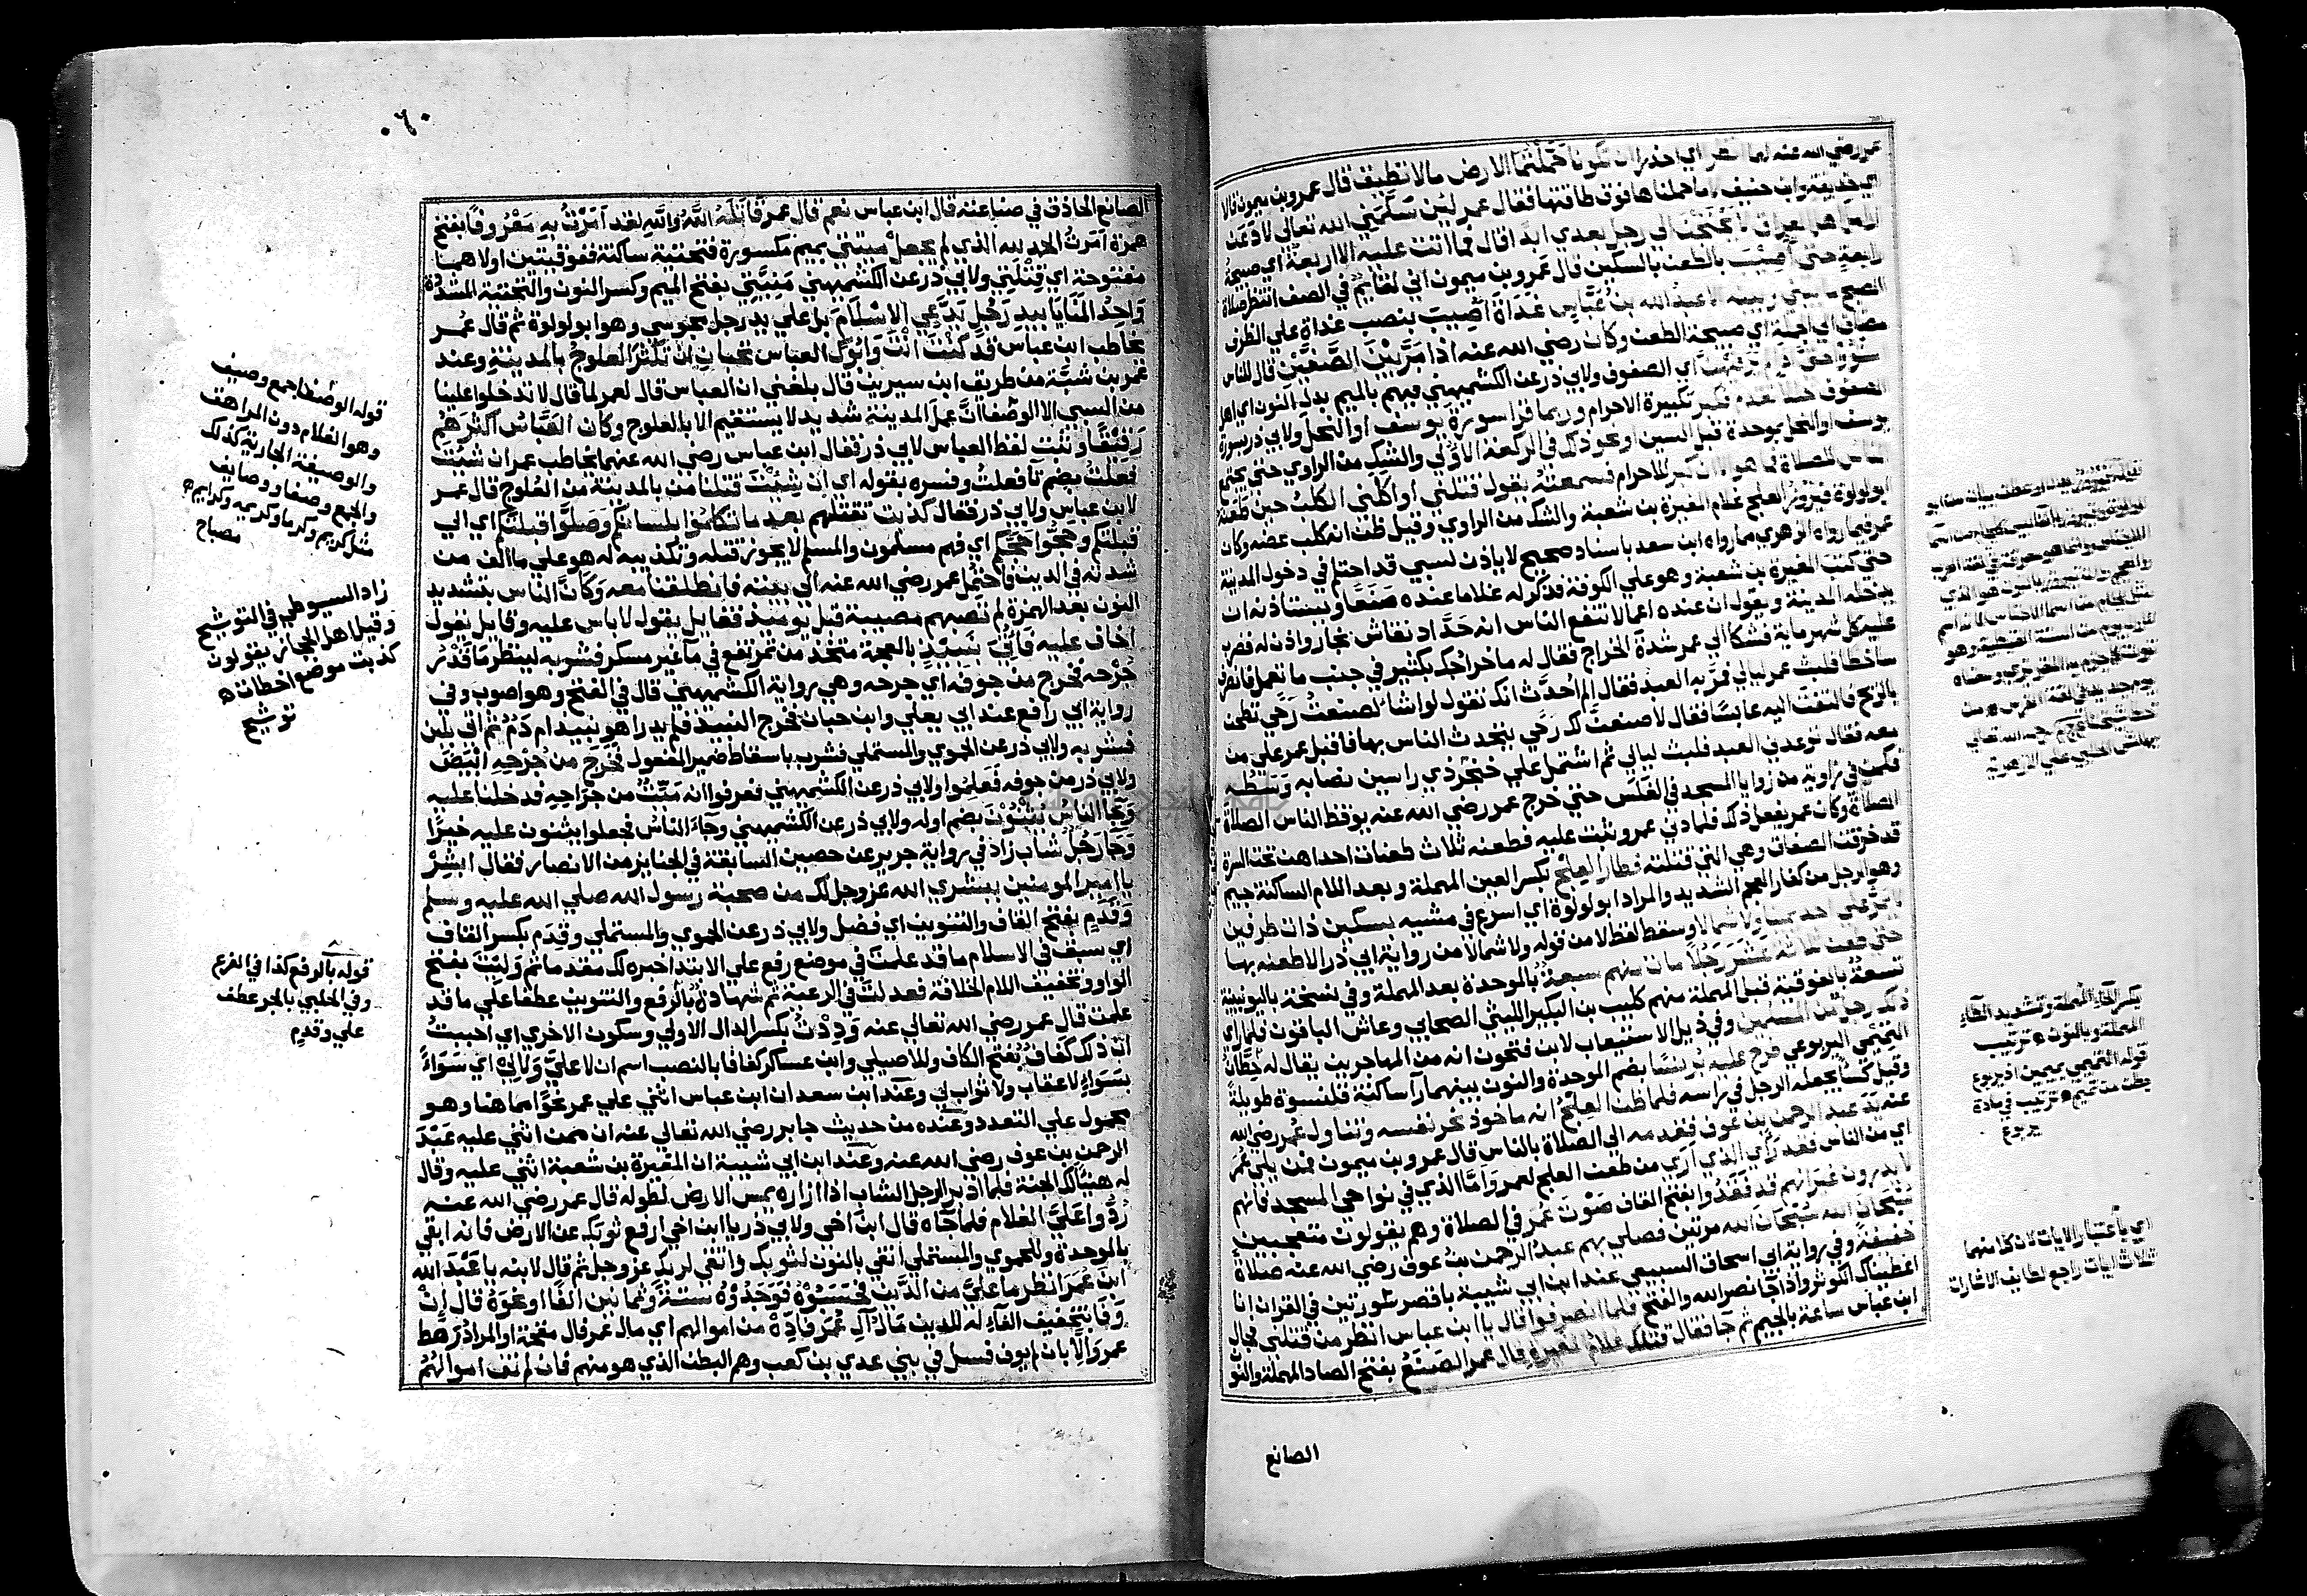 عمر رضي الله عنه لهما انظرا اي احذرا ان تكونا حملتما الارض ما لا تطيق قال عمرو بن ميمون قالا
اي حذيفة وابن حنيف ما حملناها فوق طاقتها فقال عمر لين سلمني الله تعالى لادعن
ارامل اهل العراق لا يحتجن الى رجل بعدي ابدا قال فما اتت عليه الا اربعة اي صبيحة
رابعة حتى اصيب بالطعن بالسكين قال عمرو بن ميمون اني لقايم في الصف انتظر صلاة
الصبح ما بيني وبينه الا عبد الله بن عباس غداة اصيب بنصب غداة على الظرف
مضاف الى الجملة اي صبيحة الطعن وكان رضي الله عنه اذا مر بين الصفين قال للناس
استووا حتى اذا لم ير فيهن اي الصفوف ولابي ذر عن الكشميهني فيهم بالميم بدل النون اي اهل
الصفوف خللا تقدم فكبر تكبيرة الاحرام وربما قرا سورة يوسف او النحل ولابي ذر بسورة
يوسف او النحل بموحدة قبل السين او نحو ذلك في الركعة الاولى والشك من الراوي حتى يجتمع
الناس للصلاة فما هو الا ان كبر للاحرام فسمعته يقول قتلني او اكلني الكلب حين طعنه
ابو لولوة فيروز العلج غلام المغيرة بن شعبة والشك من الراوي وقيل ظن انه كلب عضه وكان
عمر فيما رواه الزهري مما رواه ابن سعد باسناد صحيح لا ياذن لسبي قد احتلم في دخول المدينة
حتى كتب المغيرة بن شعبة وهو على الكوفة فذكر له غلاما عنده صنعا ويستاذنه ان
يدخله المدينة ويقول ان عنده اعمالا تنفع الناس انه حداد نقاش نجار واذن له فضرب
عليه كل شهر ماية فشكا الى عمر شدة الخراج فقال له ما خراجك بكثير في جنب ما تعمل فانصرف
ساخطا فلبث عمر ليالي فمر به العبد فقال الم احدث انك تقول لو اشا لصنعت رحي تطحن
بالريح فالتفت اليه عابسا فقال لاصنعن لك رحي يتحدث الناس بها فاقبل عمر على من
معه فقال توعدني العبد فلبث ليالي ثم اشتمل على خنجر ذي راسين نصابه وسطه
فكمن في زاوية من زوايا المسجد في الغلس حتى خرج عمر رضي الله عنه يوقظ الناس الصلاة
الصلاة وكان عمر يفعل ذلك فلما دنى عمر وثب عليه فطعنه ثلاث طعنات احداهن تحت السرة
قد خرقت الصفاق وهي التي قتلته فطار العلج بكسر العين المهملة وبعد اللام الساكنة جيم
وهو الرجل من كفار العجم الشديد والمراد ابو لولوة اي اسرع في مشيه بسكين ذات طرفين
لا يمر على احد يمينا ولا شمالا وسقط لفظ لا من قوله ولا شمالا من رواية ابي ذر الا طعنه بها
حتى طعن ثلاثة عشر رجلا مات منهم سبعة بالموحدة بعد المهملة وفي نسخة باليونينية
تسعة بالفوقية قبل المهملة منهم كليب بن البكير الليثي الصحابي وعاش الباقون فلما راى
ذلك رجل من المسلمين وفي ذيل الاستيعاب لابن فتحون انه من المهاجرين يقال له حطان
التميمي اليربوعي طرح عليه برنسا بضم الموحدة والنون بينهما رآ ساكنة قلنسوة طويلة
وقيل كسا يجعله الرجل في راسه فلما ظن العلج انه ماخوذ نحر نفسه وتناول عمر رضي الله
عنه يد عبد الرحمن بن عوف فقدمه الى الصلاة بالناس قال عمرو بن ميمون فمن يلي عمر
اي من الناس فقد راى الذي ارى من طعن العلج لعمر واما الذي في نواحي المسجد فانهم
لا يدرون غير انهم قد فقدوا بفتح القاف صوت عمر في الصلاة وهم يقولون متعجبين
سبحان الله سبحان الله مرتين فصلى بهم عبد الرحمن بن عوف رضي الله عنه صلاة
خفيفة وفي رواية ابي اسحاق السبيعي عند ابن ابي شيبة باقصر سورتين في القران انا
اعطيناك الكوثر واذا جا نصر الله والفتح فلما انصرفوا قال يا ابن عباس انظر من قتلني فجال
ابن عباس ساعة بالجيم ثم جا فقال قتلك غلام المغيرة قال عمر الصنع بفتح الصاد المهملة والنون
الصانع
بكسر الحاء المهملة وتشديد الطاء
المهملة وبالنون ترتيب
قوله التميمي بميمين اذ يربوع
بطن من تميم ترتيب في مادة
يربوع
اي باعتبار الايات لان كلا منهما
ثلاث ايات راجع لطايف الاشارات
٦٠
الصانع الحاذق في صناعته قال ابن عباس نعم قال عمر قاتله الله والله لقد امرت به معروفا بفتح
همزة امرت الحمد لله الذي لم يجعل ميتتي بميم مكسورة فتحتية ساكنة ففوقيتين اولاهما
مفتوحة اي قتلتي ولابي ذر عن الكشميهني منيتي بفتح الميم وكسر النون والتحتية المشددة
واحد المنايا بيد رجل يدعي الاسلام بل على يد رجل مجوسي وهو ابو لولوة ثم قال عمر
يخاطب ابن عباس قد كنت انت وابوك العباس تحبان ان تكثر العلوج بالمدينة وعند
عمر بن شبة من طريق ابن سيرين قال بلغني ان العباس قال لعمر لما قال لا تدخلوا علينا
من السبي الا الوصفا ان عمل المدينة شديد لا يستقيم الا بالعلوج وكان العباس اكثرهم
رقيقا وثبت لفظ العباس لابي ذر فقال ابن عباس رضي الله عنهما يخاطب عمر ان شيت
فعلت بضم تا فعلت وفسره بقوله اي ان شيت قتلنا من بالمدينة من العلوج قال عمر
لابن عباس ولابي ذر فقال كذبت تقتلهم بعد ما تكلموا بلسانكم وصلوا قبلتكم اي الى
قبلتكم وحجوا حجكم اي فهم مسلمون والمسلم لا يجوز قتله وتكذيبه له هو على ما الف من
شدته في الدين فاحتمل عمر رضي الله عنه الى بيته فانطلقنا معه وكان الناس بتشديد
النون بعد الهمزة لم تصبهم مصيبة قبل يوميذ فقايل يقول لا باس عليه وقايل يقول
اخاف عليه فاتي بنبيذ بالمعجمة متخذ من تمر نقع في ما غير مسكر فشربه لينظر ما قدر
جرحه فخرج من جوفه اي جرحه وهي رواية الكشميهني قال في الفتح وهو اصوب وفي
رواية ابي رافع عند ابي يعلى وابن حبان فخرج النبيذ فلم يدر اهو نبيذ ام دم ثم اتي بلبن
فشربه ولابي ذر عن الحموي والمستملي فشرب باسقاط ضمير المفعول فخرج من جرحه ابيض
ولابي ذر من جوفه فعلموا ولابي ذر عن الكشميهني فعرفوا انه ميت من جراحه فدخلنا عليه
وجا الناس يثنون بضم اوله ولابي ذر عن الكشميهني وجاء الناس فجعلوا يثنون عليه خيرا
وجا رجل شاب زاد في رواية جرير عن حصين السابقة في الجنايز من الانصار فقال ابشر
يا امير المومنين ببشرى الله عز وجل لك من صحبة رسول الله صلى الله عليه وسلم
وقدم بفتح القاف والتنوين اي فضل ولابي ذر عن الحموي والمستملي وقدم بكسر القاف
اي سبق في الاسلام ما قد علمت في موضع رفع على الابتدا خبره لك مقدما ثم وليت بفتح
الواو وتخفيف اللام الخلافة فعدلت في الرعية ثم شهادة بالرفع والتنوين عطفا على ما قد
علمت قال عمر رضي الله تعالى عنه وددت بكسر الدال الاولى وسكون الاخرى اي احببت
ان ذلك كفاف بفتح الكاف وللاصيلي وابن عساكر كفافا بالنصب اسم ان لا علي ولا لي اي سواء
بسواء لا عقاب ولا ثواب لي وعند ابن سعد ان ابن عباس اثنى على عمر نحوا مما هنا وهو
محمول على التعدد وعنده من حديث جابر رضي الله تعالى عنه ان ممن اثنى عليه عبد
الرحمن بن عوف رضي الله عنه وعند ابن ابي شيبة ان المغيرة بن شعبة اثنى عليه وقال
له هنيا لك الجنة فلما ادبر الرجل الشاب اذا ازاره يمس الارض لطوله قال عمر رضي الله عنه
ردوا علي الغلام فلما جاه قال ابن اخي ولابي ذر يا ابن اخي ارفع ثوبك عن الارض فانه ابقى
بالموحدة وللحموي والمستملي انقى بالنون لثوبك واتقى لربك عز وجل ثم قال لابنه يا عبد الله
ابن عمر انظر ما علي من الدين فحسبوه فوجدوه ستة وثمانين الفا او نحوه قال ان
وفا بتخفيف الفاء له للدين مال آل عمر فاده من اموالهم اي مال عمر فال مقحمة او المراد رهط
عمر والا بان لم يوف فسل في بني عدي بن كعب وهم البطن الذي هو منهم فان لم تف اموالهم
قوله الوصفا جمع وصيف
وهو الغلام دون المراهق
والوصيفة الجارية كذلك
والجمع وصفا ووصايف
مثل كريم وكرما وكريمه وكرايم
مصباح
زاد السيوطي في التوشيح
وقيل اهل الحجاز يقولون
كذبت موضع اخطات
توشيح
قوله بالرفع كذا في الفرع
وفي الحلبي بالجر عطف
على وقدم